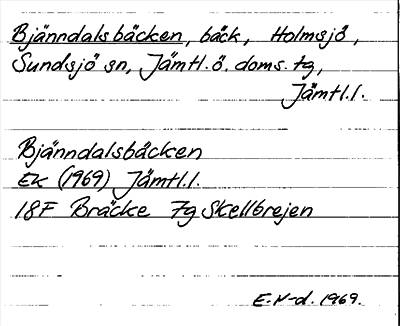 Bjänndalsbäcken, bäck, Holmsjö,
Sundsjö sn, Jämtl.ö. doms. tg,
Jämtl.l.
Bjänndalsbäcken
Ek (1969) Jämtl.l.
18F Bräcke 7g Skellbrejen
E.N-d. 1969.